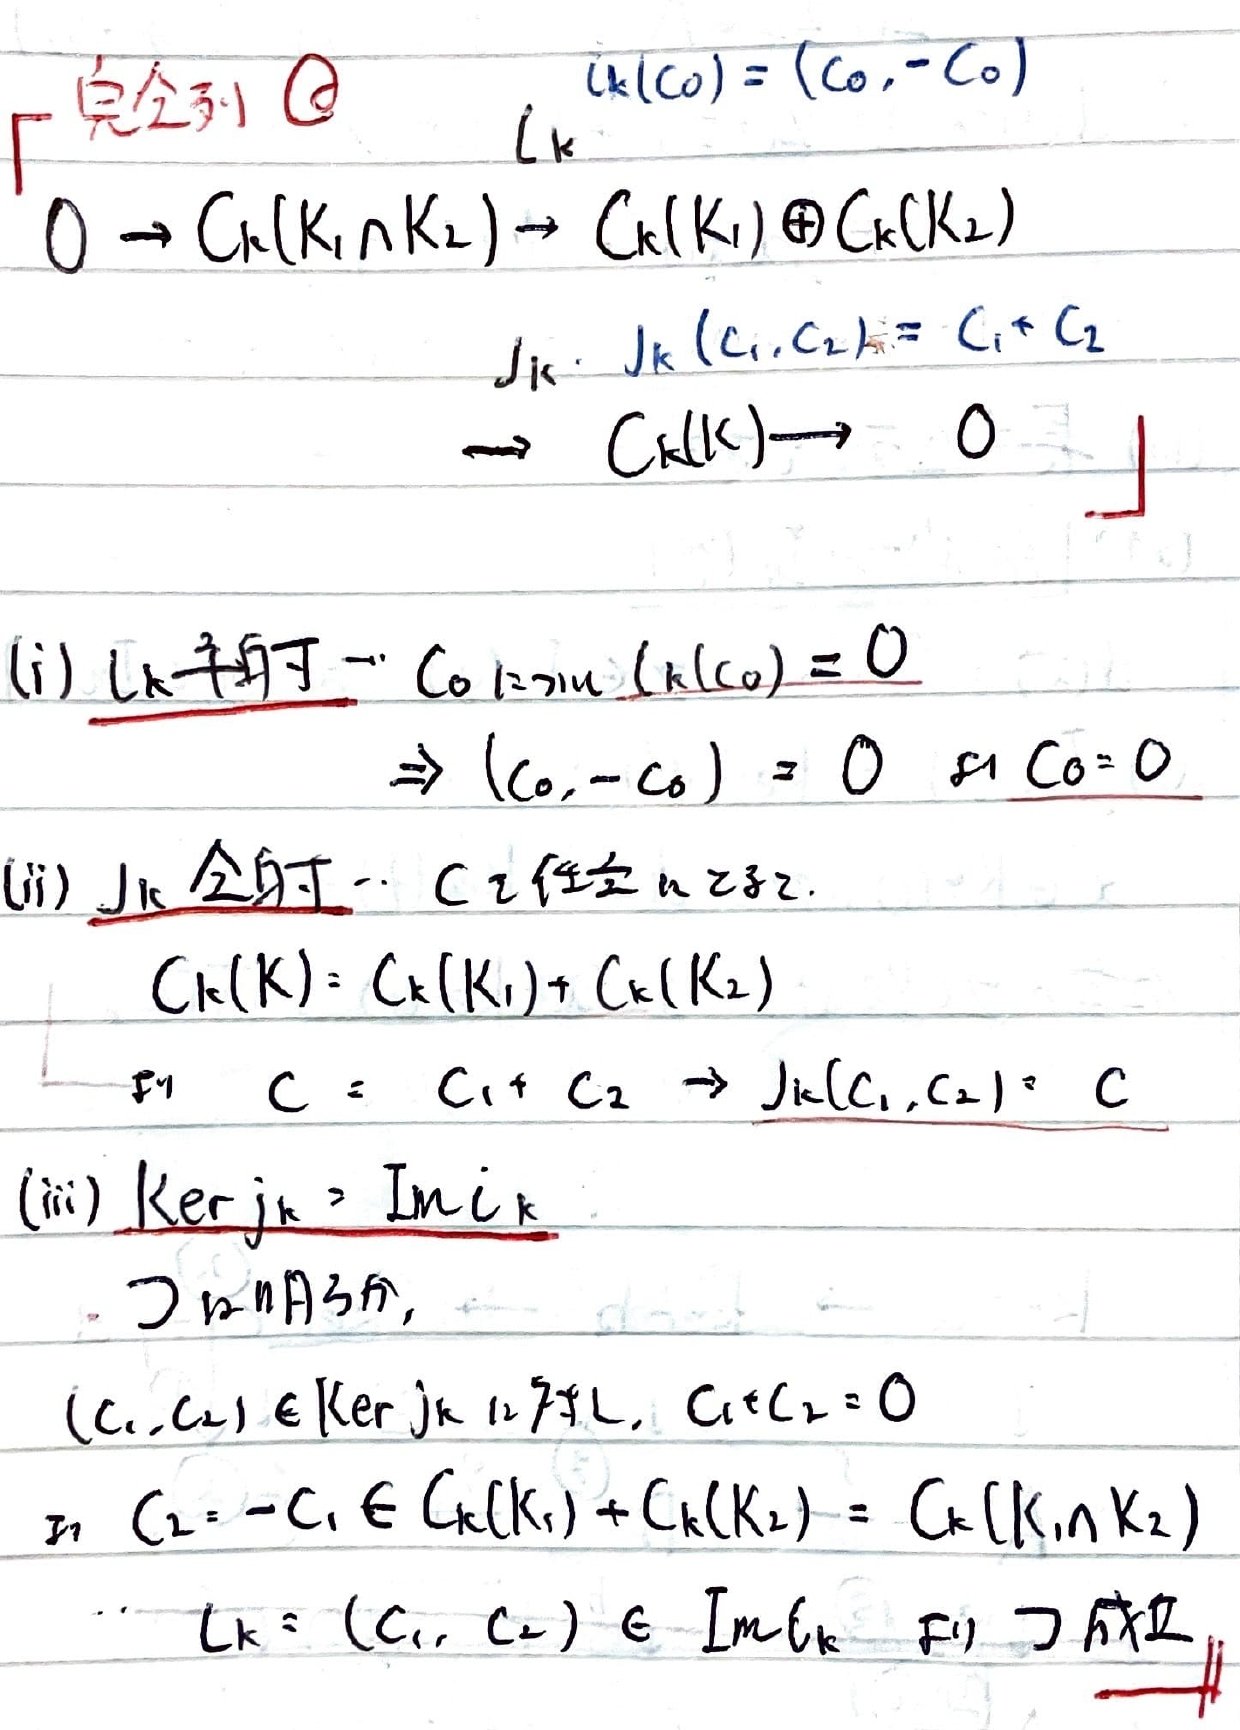 完全列@
i_k(c₀) = (c₀, -c₀)
i_k
「0 → C_k(K₁∩K₂) → C_k(K₁)⊕C_k(K₂)
j_k. j_k(c₁, c₂) = c₁ + c₂
→ C_k(K) → 0 」
(i) i_k 単射 … c₀について i_k(c₀) = 0
⇒ (c₀, -c₀) = 0 より c₀ = 0
(ii) j_k 全射 … cを任意にとると.
C_k(K) = C_k(K₁) + C_k(K₂)
より c = c₁ + c₂ → j_k(c₁, c₂) = c
(iii) Ker j_k = Im i_k
⊃は明らか,
(c₁, c₂) ∈ Ker j_k に対し, c₁ + c₂ = 0
より c₂ = -c₁ ∈ C_k(K₁) + C_k(K₂) = C_k(K₁∩K₂)
∵ i_k = (c₁, c₂) ∈ Im i_k より ⊃ 成立